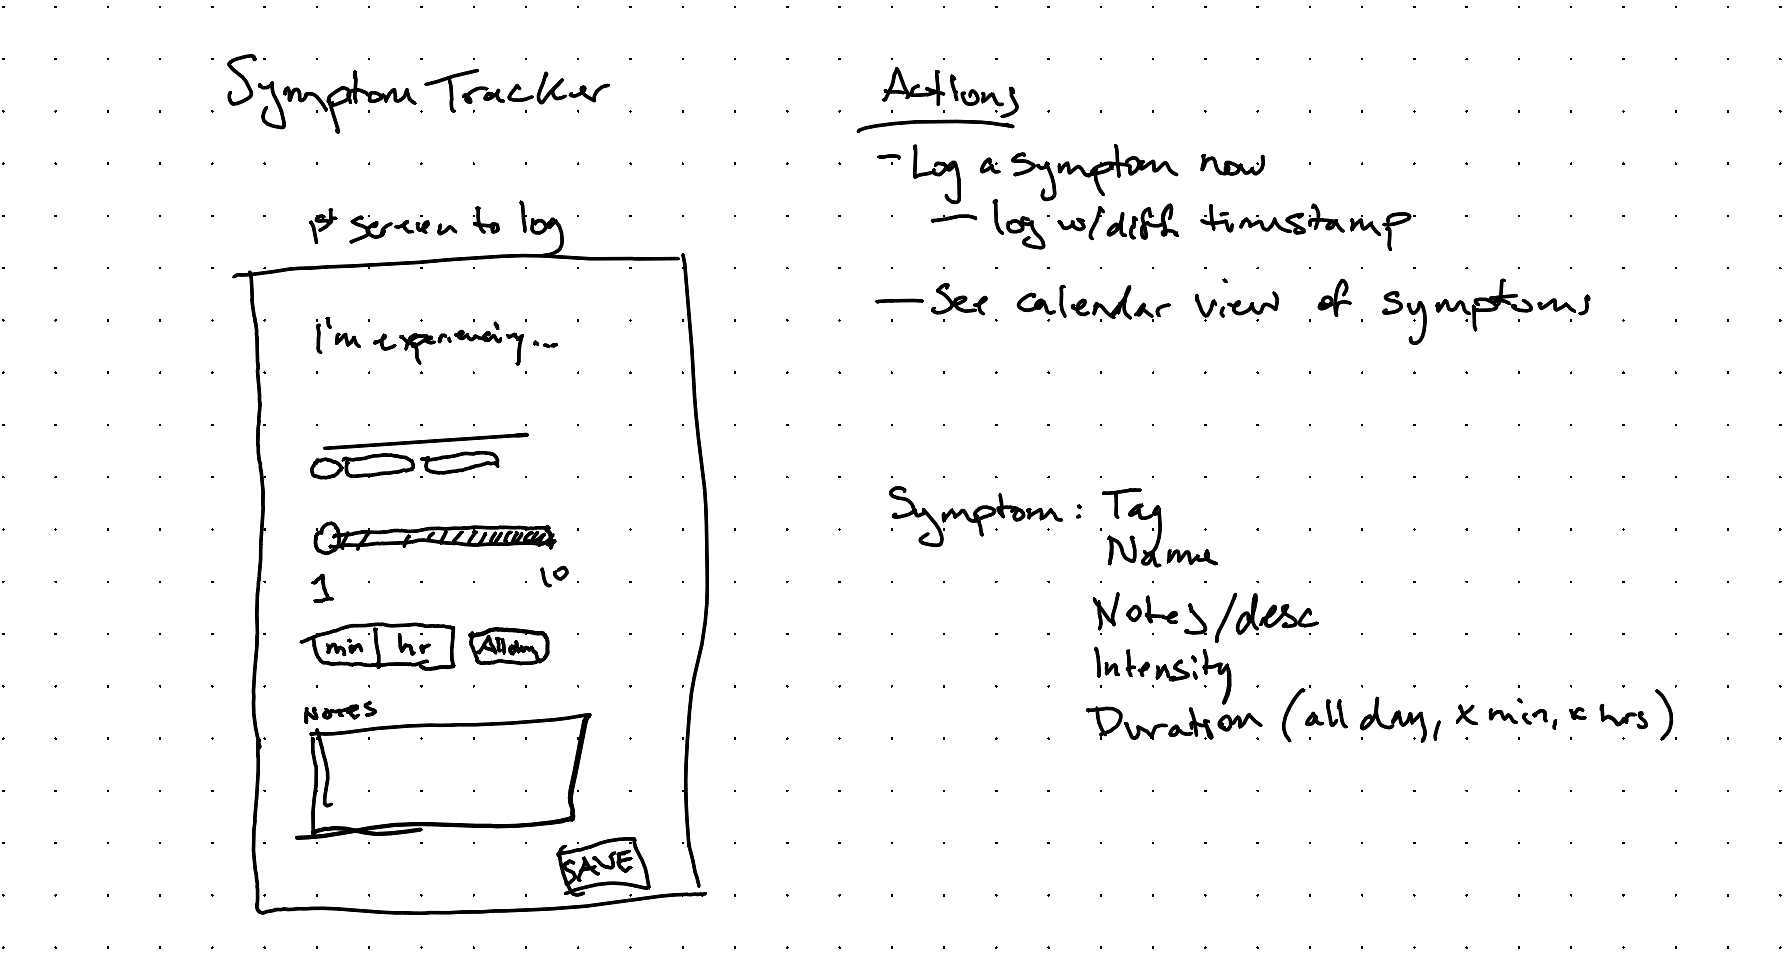 Symptom Tracker
1st screen to log
I'm experiencing...
1 10
min hr All day
Notes
SAVE
Actions
- Log a symptom now
- log w/diff timestamp
- See calendar view of symptoms
Symptom: Tag
Name
Notes/desc
Intensity
Duration (all day, x min, x hrs)